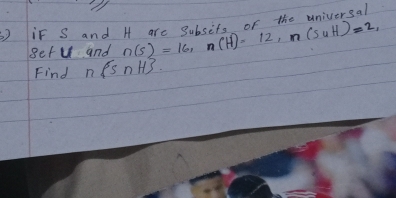 5) iF S and H are Subsets OF the universal
Set U and n(S) = 16, n(H) = 12, n(SuH) = 2,
Find n{SnH}.